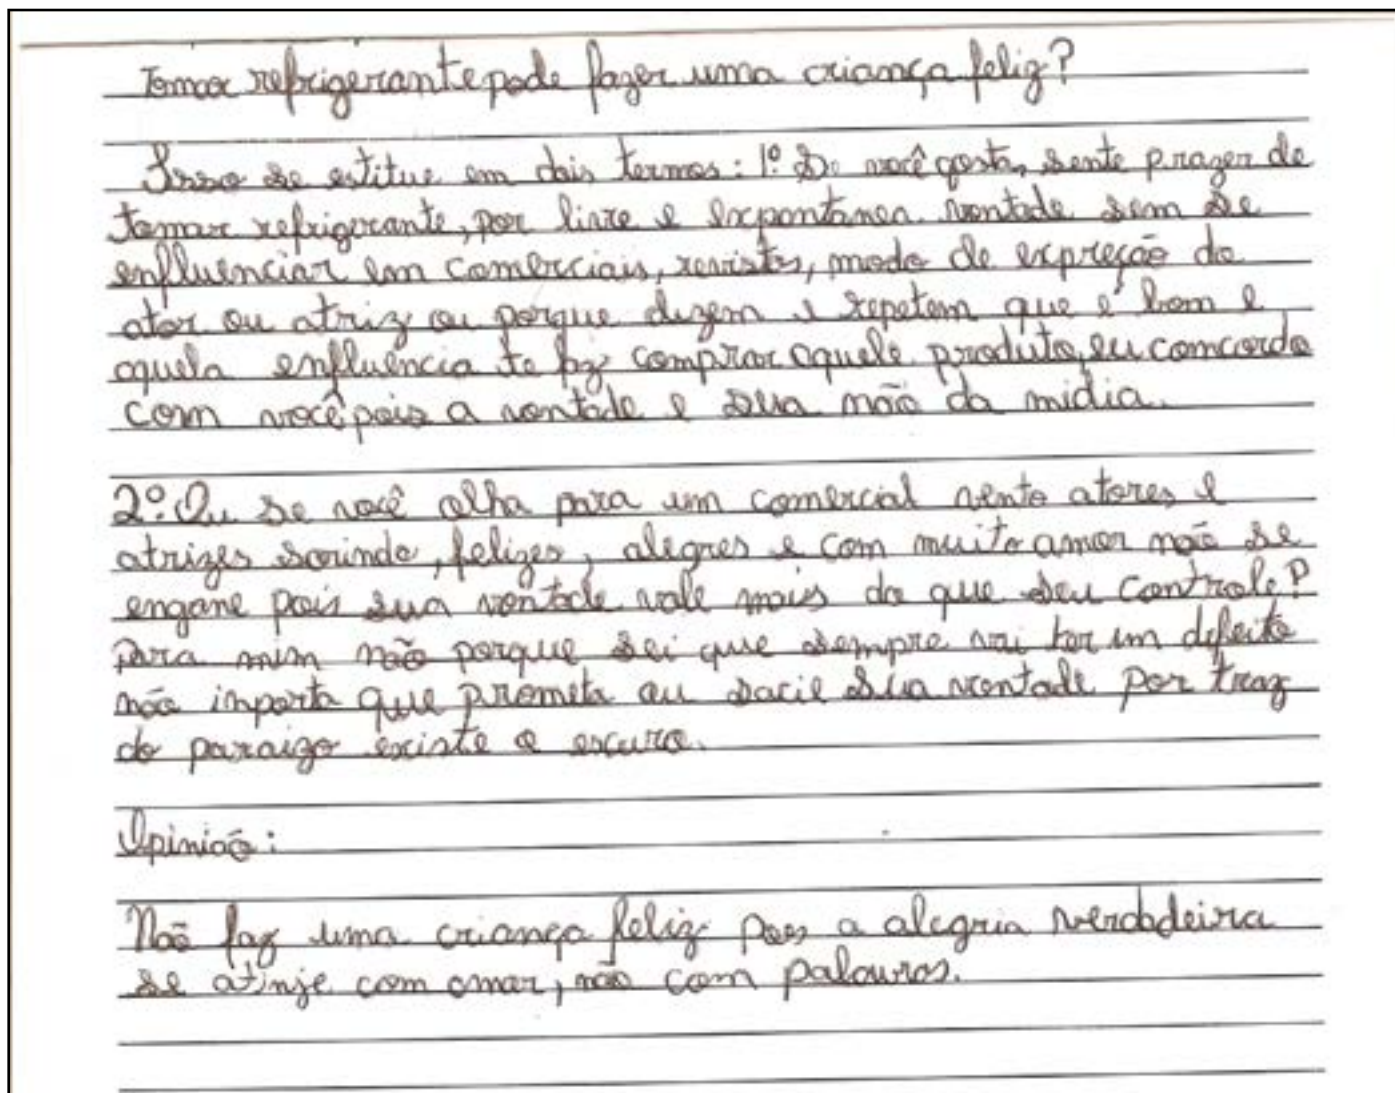 Tomar refrigerante pode fazer uma criança feliz?
Isso se estitue em dois termos: 1º Se você gosta, sente prazer de
tomar refrigerante, por livre e expontânea vontade sem se
enfluênciar em comerciais, revistas, modo de expreção do
ator ou atriz ou porque dizem e repetem que é bom e
aquela enfluência te faz comprar aquele produto, eu comcordo
com você pois a vontade e sua não da mídia.
2º: Ou se você olha para um comercial vento atores e
atrizes sorindo, felizes, alegres e com muito amor não se
engane pois sua vontade vale mais do que seu controle?
Para mim não porque sei que sempre vai ter um defeito
não inporta que prometa ou sacie sua vontade por traz
do paraizo existe o escuro.
Opinião:
Não faz uma criança feliz pois a alegria verdadeira
se atinje com amar, não com palavras.